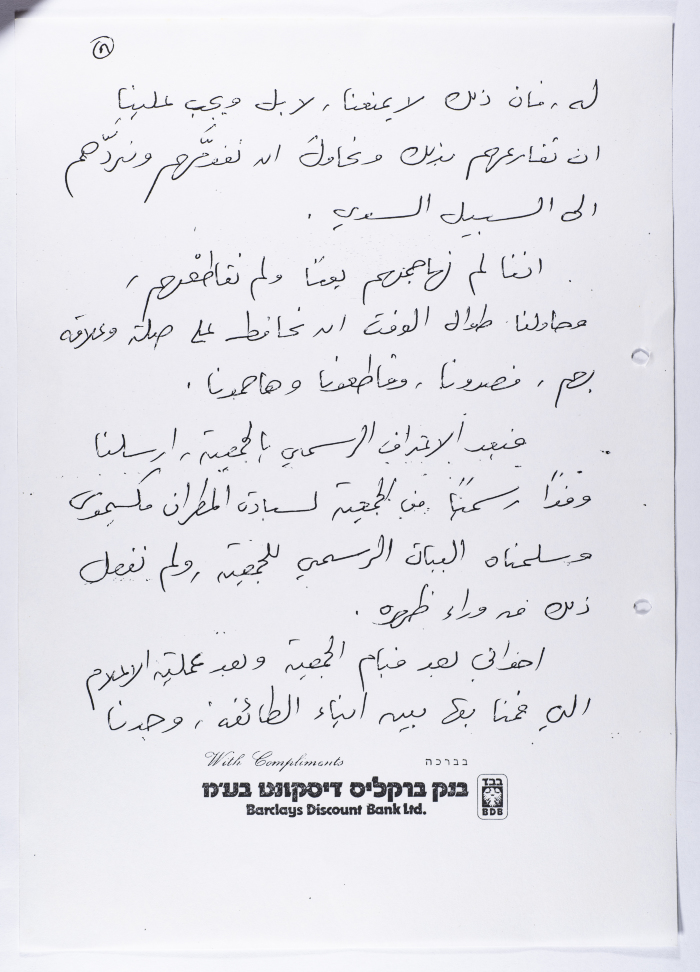 له، فان ذلك لا يمنعنا، لا بل ويجب علينا
ان نقارعهم بذلك ونحاول ان نقومّهم ونردّهم
الى السبيل السوي .
اننا لم نهاجمهم يومًا ولم نقاطعْهم ،
وحاولنا طوال الوقت ان نحافظ على صلة وعلاقة
بهم ، فصدونا ، وقاطعونا وهاجمونا .
فبعد الاعتراف الرسمي بالجمعية ، ارسلنا
وفدًا رسميًا من الجمعية لسيادة المطران مكسيموس
وسلمناه البيان الرسمي للجمعية ، ولم نفعل
ذلك من وراء ظهره .
اخواني بعد قيام الجمعية وبعد عملية الاعلام
التي قمنا بها بين ابناء الطائفة ، وجدنا
With Compliments בברכה
בנק ברקליס דיסקונט בע"מ
Barclays Discount Bank Ltd.
בבד
BDB